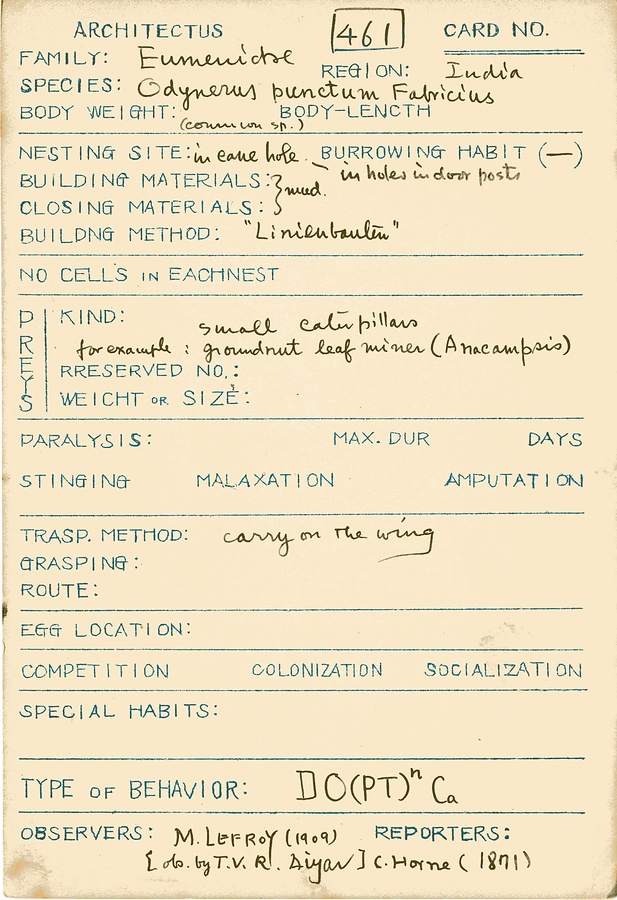 ARCHITECTUS 461 CARD NO.
FAMILY: Eumenidae REGION: India
SPECIES: Odynerus punctum Fabricius
BODY WEIGHT: BODY-LENCTH
(common sp.)
NESTING SITE: in cane hole. BURROWING HABIT (—)
in holes in door posts
BUILDING MATERIALS: } mud.
CLOSING MATERIALS:
BUILDNG METHOD: "Linienbauten"
NO CELLS IN EACHNEST
PREYS
KIND: small caterpillars
for example : groundnut leaf miner (Anacampsis)
RRESERVED NO.:
WEICHT OR SIZE:
PARALYSIS: MAX. DUR DAYS
STINGING MALAXATION AMPUTATION
TRASP. METHOD: carry on the wing
GRASPING:
ROUTE:
EGG LOCATION:
COMPETITION COLONIZATION SOCIALIZATION
SPECIAL HABITS:
TYPE OF BEHAVIOR: DO(PT)ⁿ Ca
OBSERVERS: M. LEFROY (1909) REPORTERS:
[ob. by T.V. R. Aiyar] C. Horne (1871)